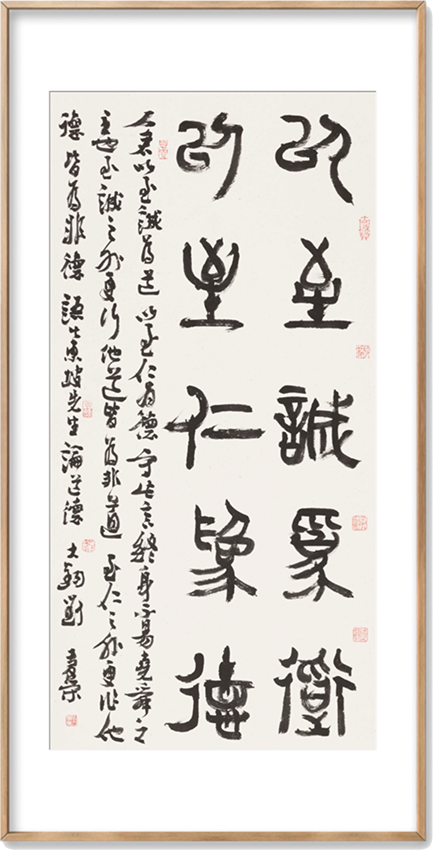 以至誠爲衟
以至仁爲德
人君以至誠為道以至仁為德守此言終身不易堯舜之
主也至誠之外更行他道皆為非道至仁之外更作他
德皆為非德語出東坡先生論道德